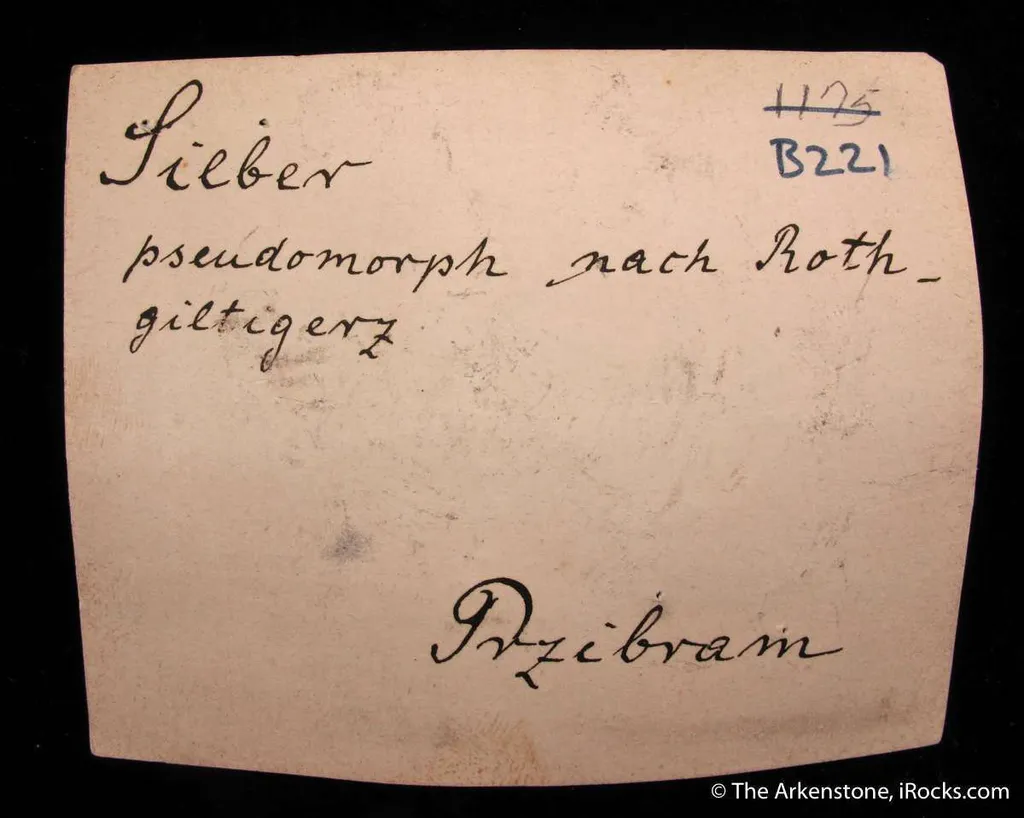 Silber
1175
B221
pseudomorph nach Roth-
giltigerz
Przibram
© The Arkenstone, iRocks.com